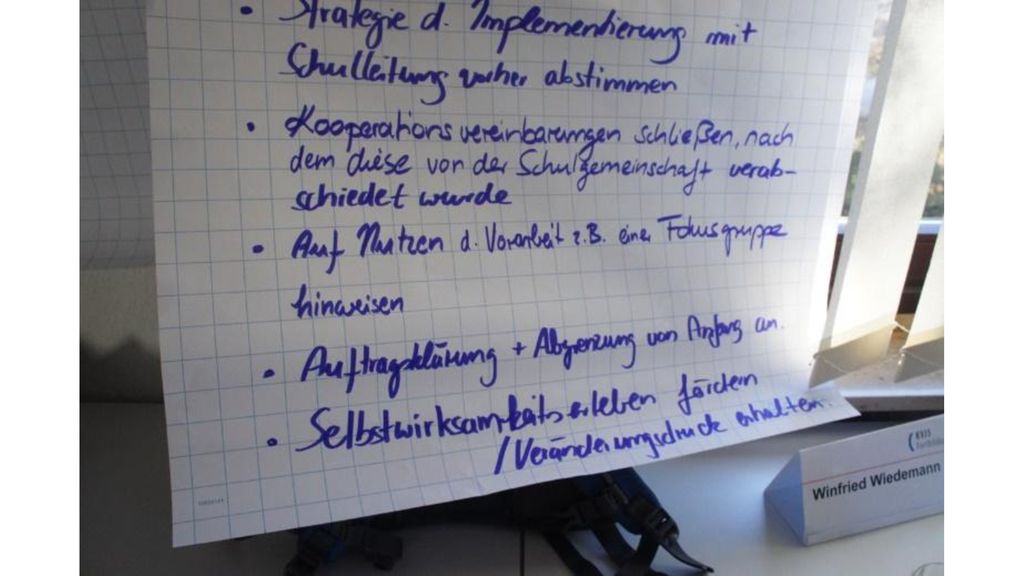 • Strategie d. Implementierung mit
Schulleitung vorher abstimmen
• Kooperationsvereinbarungen schließen, nach
dem diese von der Schulgemeinschaft verab-
schiedet wurde
• Auf Nutzen d. Vorarbeit z.B. einer Fokusgruppe
hinweisen
• Auftragsklärung + Abgrenzung von Anfang an.
• Selbstwirksamkeitserleben fördern
/Veränderungsdruck erhalten.
KVJS
Winfried Wiedemann